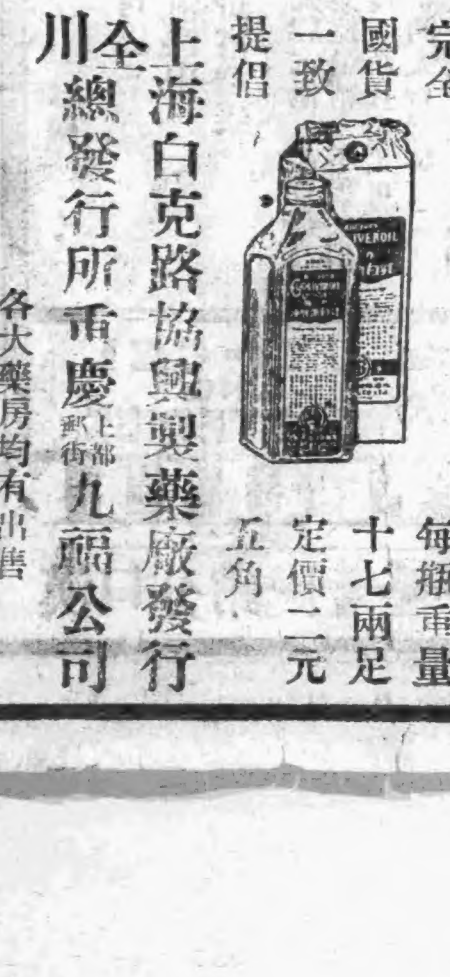 完全
國貨
一致
提倡
IVEROIL
每瓶重量
十七兩足
定價二元
五角
上海白克路協興製藥廠發行
全川總發行所重慶上都郵街九福公司
各大藥房均有出售